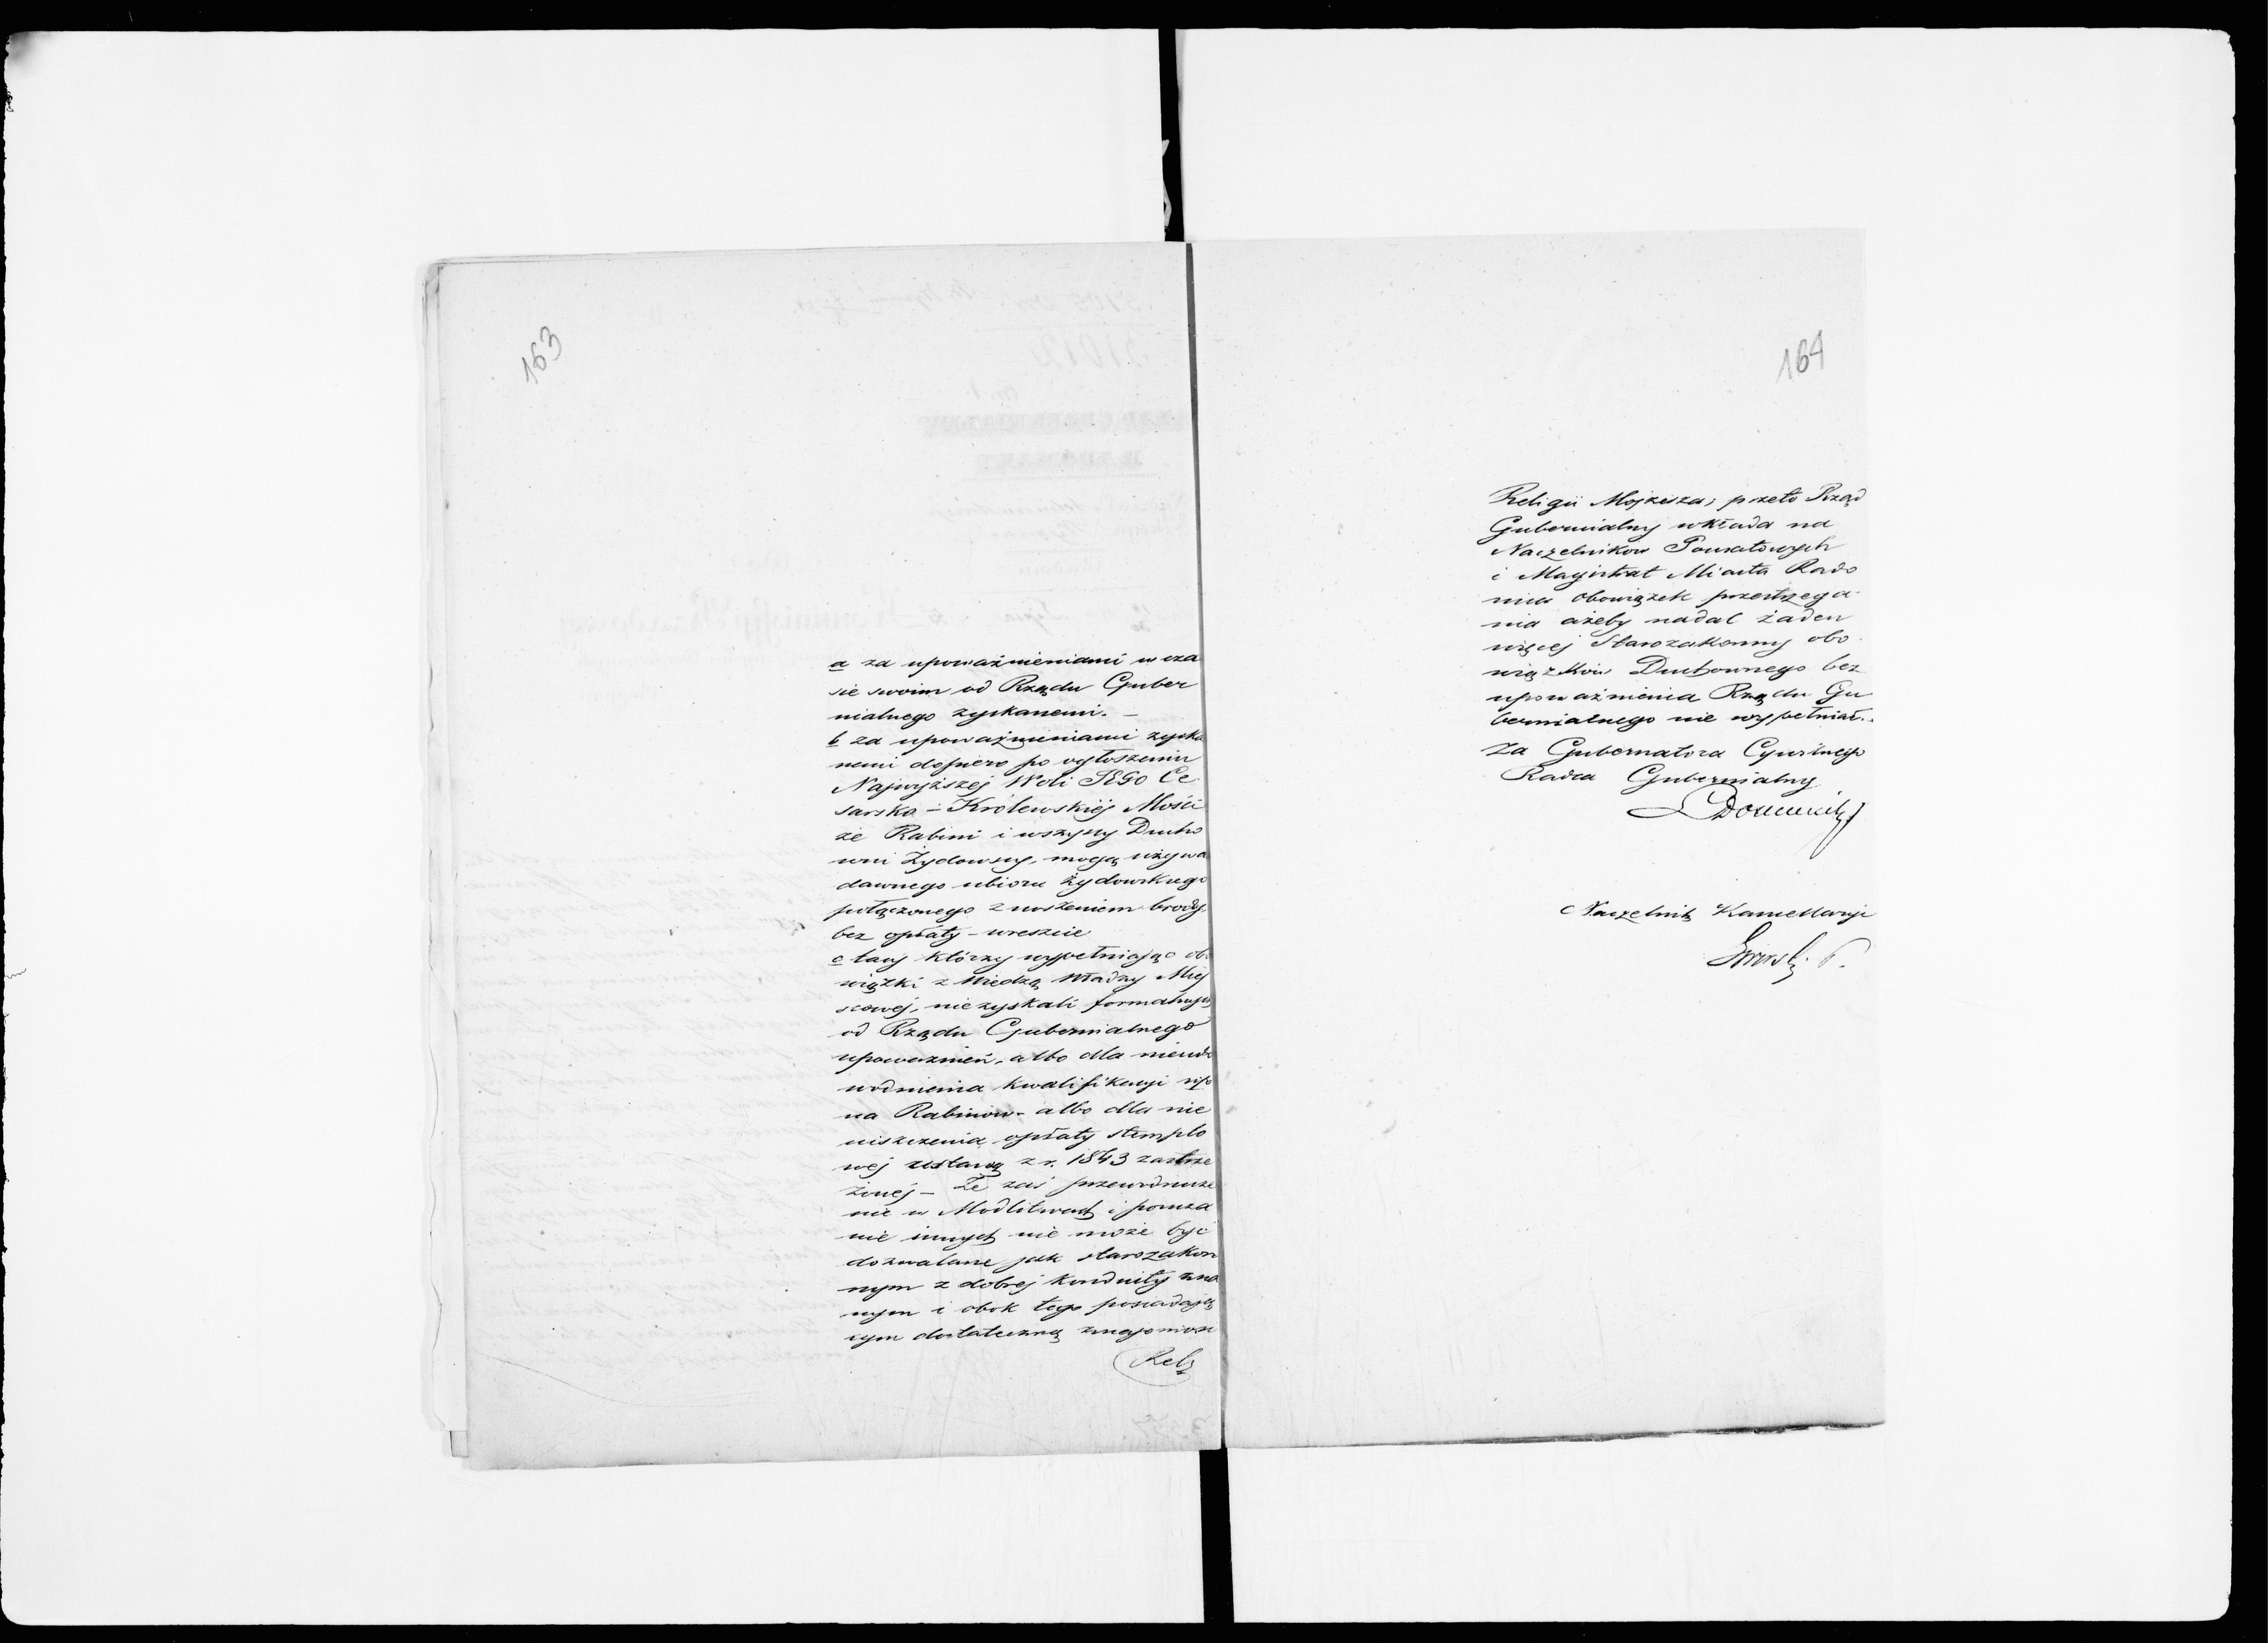 163
a za upoważnieniami w cza
sie swoim od Rządu Guber
nialnego zyskanemi. —
b za upoważnieniami zyska
nemi dopiero po ogłoszeniu
Najwyższej Woli JEGO Ce
sarsko - Królewskiej Mości
że Rabini i wszyscy Ducho
wni Żydowscy, mogą używa
dawnego ubioru żydowskiego
połączonego z noszeniem brody,
bez opłaty - wreszcie
c tacy którzy wypełniając obo
wiązki z wiedzą Władzy Miej
scowej, nie zyskali formalnych
od Rządu Gubernialnego
upoważnień, albo dla nieudo
wodnienia kwalifikacyi
na Rabinów - albo dla nie
uiszczenia opłaty stemplo
wej ustawą z r. 1843 zastrze
żonej — Że zaś przewodnicze
nie w Modlitwach i poucza
nie innych nie może być
dozwalane jak starozakon
nym z dobrej konduity zna
nym i obok tego posiadają
cym dostateczną znajomość
Reli
164
Religii Mojżesza, przeto Rząd
Gubernialny wkłada na
Naczelników Powiatowych
i Magistrat Miasta Rado
mia obowiązek przestrzega
nia ażeby nadal żaden
więcej Starozakonny obo
wiązków Duchownego bez
upoważnienia Rządu Gu
bernialnego nie wypełniał.
Za Gubernatora Cywilnego
Radca Gubernialny
Naczelnik Kancellaryi